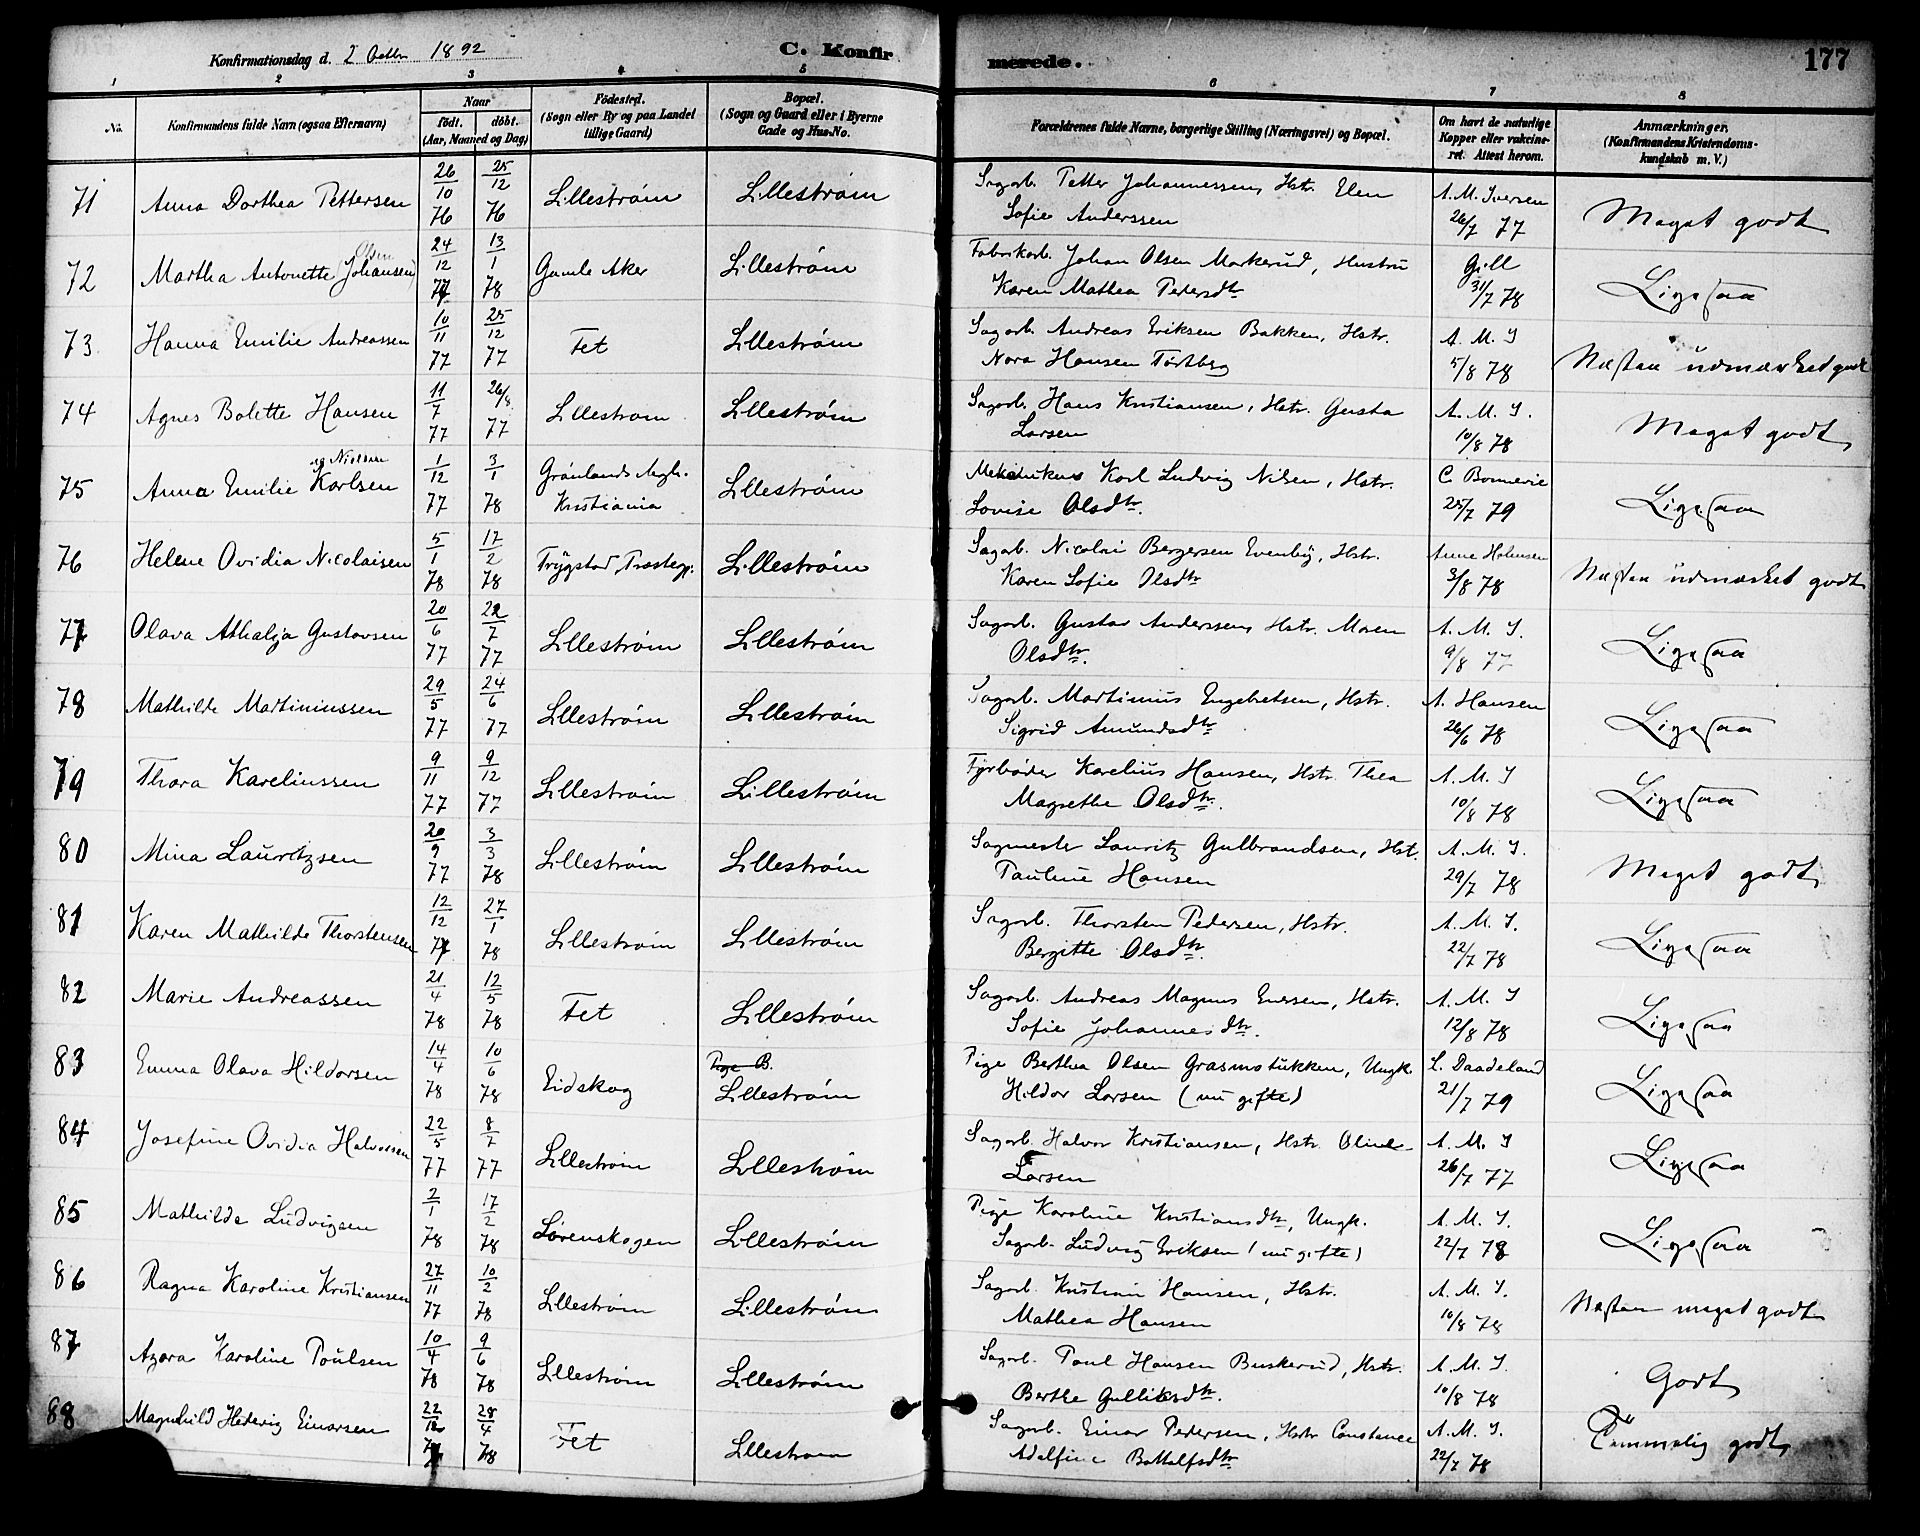 Konfirmationsdag d. 2 Octbr 1892
C. Konfirmerede.
177
1 2 3 4 5 6 7 8
No.
Konfirmandens fulde Navn (ogsaa Efternavn)
Naar
født. døbt.
(Aar, Maaned og Dag)
Fødested.
(Sogn eller By og paa Landet
tillige Gaard)
Bopæl.
(Sogn og Gaard eller i Byerne
Gade og Hus-No.
Forældrenes fulde Navne, borgerlige Stilling (Næringsvei) og Bopæl.
Om havt de naturlige
Kopper eller vakcine-
ret. Attest herom.
Anmærkninger.
(Konfirmandens Kristendoms-
kundskab m. V.)
71 Anna Dorthea Pettersen 26/10 76 25/12 76 Lillestrøm Lillestrøm Sagarb. Petter Johannessen, Hstr. Elen
Sofie Anderssen A. M. Iversen 26/7 77 Meget godt
72 Martha Antonette (Johansen) Olsen 24/12 77 13/1 78 Gamle Aker Lillestrøm Fabrikarb. Johan Olsen Markerud, Hustru
Karen Mathea Pedersdtr Gjell 31/7 78 Ligesaa
73 Hanna Emilie Andreassen 10/11 77 25/12 77 Fet Lillestrøm Sagarb. Andreas Eriksen Bakken, Hstr.
Nora Hansen Tørtberg A. M. I 5/8 78 Næsten udmærket godt
74 Agnes Bolette Hansen 11/7 77 26/8 77 Lillestrøm Lillestrøm Sagarb. Hans Kristiansen, Hstr. Gusta
Larsen A. M. I. 10/8 78 Meget godt
75 Anna Emilie Karlsen eg Nielsen 1/12 77 3/1 78 Grønlands Mgh.
Kristiania Lillestrøm Mekanikus Karl Ludvig Nilsen, Hstr.
Lovise Olsdtr. C. Bonnevie 25/7 79 Ligesaa
76 Helene Ovidia Nicolaisen 5/1 78 17/2 78 Trygstad Præstegj. Lillestrøm Sagarb. Nicolai Bergersen Evenby, Hstr.
Karen Sofie Olsdtr Anne Holmsen 3/8 78 Næsten udmærket godt
77 Olava Athalja Gustavsen 20/6 77 22/7 77 Lillestrøm Lillestrøm Sagarb. Gustav Anderssen, Hstr. Maren
Olsdtr. A. M. I. 9/8 77 Ligesaa
78 Mathilde Martiniussen 29/5 77 24/6 77 Lillestrøm Lillestrøm Sagarb. Martinius Engebretsen, Hstr.
Sigrid Amundsdtr A. Hansen 26/6 78 Ligesaa
79 Thora Kareliussen 9/11 77 9/12 77 Lillestrøm Lillestrøm Fyrbøder Karelius Hansen, Hstr. Thea
Magrethe Olsdtr. A. M. I 10/8 78 Ligesaa
80 Mina Lauritzsen 20/9 77 3/3 78 Lillestrøm Lillestrøm Sagmester Lauritz Gulbrandsen, Hst.
Pauline Hansen A. M. I. 29/7 78 Meget godt
81 Karen Mathilde Thorstensen 12/12 77 27/1 78 Lillestrøm Lillestrøm Sagarb. Thorsten Pedersen, Hstr.
Bergitte Olsdtr. A. M. I. 22/7 78 Ligesaa
82 Marie Andreassen 21/4 78 12/5 78 Fet Lillestrøm Sagarb. Andreas Magnus Enersen, Hstr.
Sofie Johannesdtr. A. M. I 12/8 78 Ligesaa
83 Emma Olava Hildorsen 14/4 78 10/6 78 Eidskog Pige B.
Lillestrøm Pige Berthea Olsen Grasmostukken, Ungk.
Hildor Larsen (nu gifte) L. Daadeland 21/7 79 Ligesaa
84 Josefine Ovidia Halvorsen 22/5 77 8/7 77 Lillestrøm Lillestrøm Sagarb. Halvor Kristiansen, Hstr. Oline
Larsen A. M. I 26/7 77 Ligesaa
85 Mathilde Ludvigsen 2/1 78 17/2 78 Lørenskogen Lillestrøm Pige Karoline Kristiansdtr, Ungk.
Sagarb. Ludvig Eriksen (nu gifte) A. M. I. 22/7 78 Ligesaa
86 Ragna Karoline Kristiansen 27/11 77 10/2 78 Lillestrøm Lillestrøm Sagarb. Kristian Hansen, Hstr.
Mathea Hansen A. M. I. 10/8 78 Næsten meget godt
87 Azora Karoline Poulsen 10/4 78 9/6 78 Lillestrøm Lillestrøm Sagarb. Paul Hansen Buskerud, Hstr.
Berthe Gulliksdtr. A. M. I. 10/8 78 Godt
88 Magnhild Hedevig Einarsen 22/12 77 28/4 78 Fet Lillestrøm Sagarb. Einar Pedersen, Hstr Constance
Adelfine Bottolfsdtr A. M. I. 22/7 78 Temmelig godt